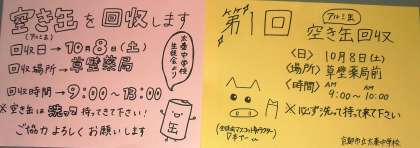 空き缶を回収します
(アルミ缶)
回収日→10月8日(土)
回収場所→草壁薬局
回収時間→9:00~13:00
※空き缶は洗って持ってきて下さい!
ご協力よろしくお願いします
太秦中学校
生徒会より
缶
第1回
アルミ缶
空き缶回収
〈日〉10月8日(土)
〈場所〉草壁薬局前
〈時間〉AM 9:00~AM 10:00
※必ず洗って持って来て下さい
京都市立太秦中学校